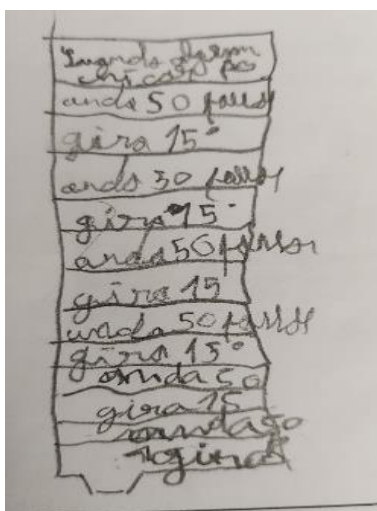 Quando alguem
clicar
anda 50 passos
gira 15°
anda 50 passos
gira 15°
anda 50 passos
gira 15
anda 50 passos
gira 15°
anda 50
gira 15
anda 50
gira